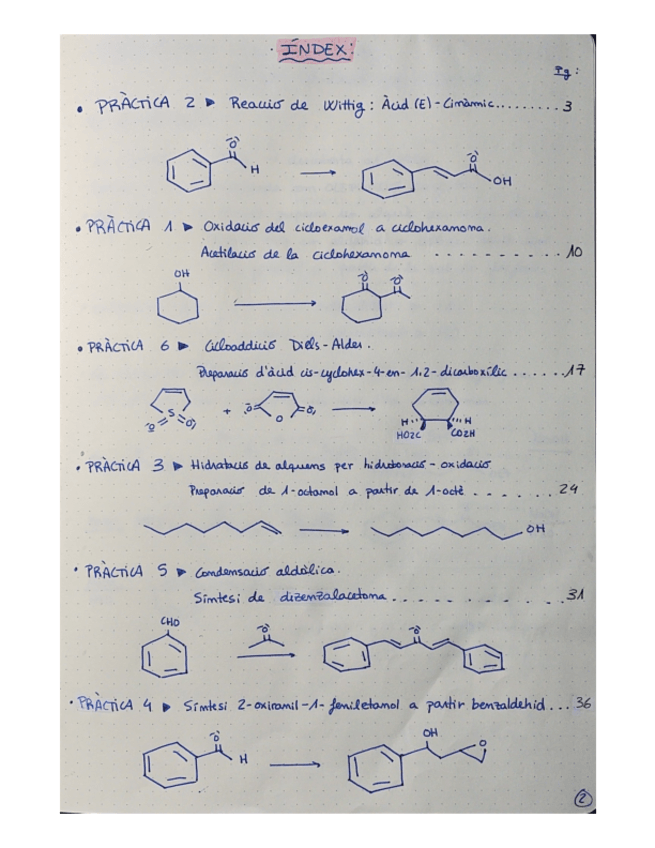 · ÍNDEX:
Pg:
• PRÀCTICA 2 ► Reacció de Wittig: Àcid (E)-Cinàmic......... 3
O
H
OH
• PRÀCTICA 1 ► Oxidació del cicloexanol a ciclohexanona.
Acetilació de la ciclohexanona - - - - - - - - - - . 10
OH
O O
• PRÀCTICA 6 ► Cicloaddició Diels-Alder.
Preparació d'àcid cis-cyclohex-4-en-1,2-dicarboxílic ......17
S
O O
+
O O O
H H
HO2C CO2H
• PRÀCTICA 3 ► Hidratació de alquens per hidroboració-oxidació
Preparació de 1-octanol a partir de 1-octè . . . . . . . 24
OH
• PRÀCTICA 5 ► Condensació aldòlica.
Síntesi de dizenzalacetona . . . . - - . - . - - . . . 31
CHO
O
O
• PRÀCTICA 4 ► Síntesi 2-oxiranil-1-feniletanol a partir benzaldehid... 36
O
H
OH
O
2